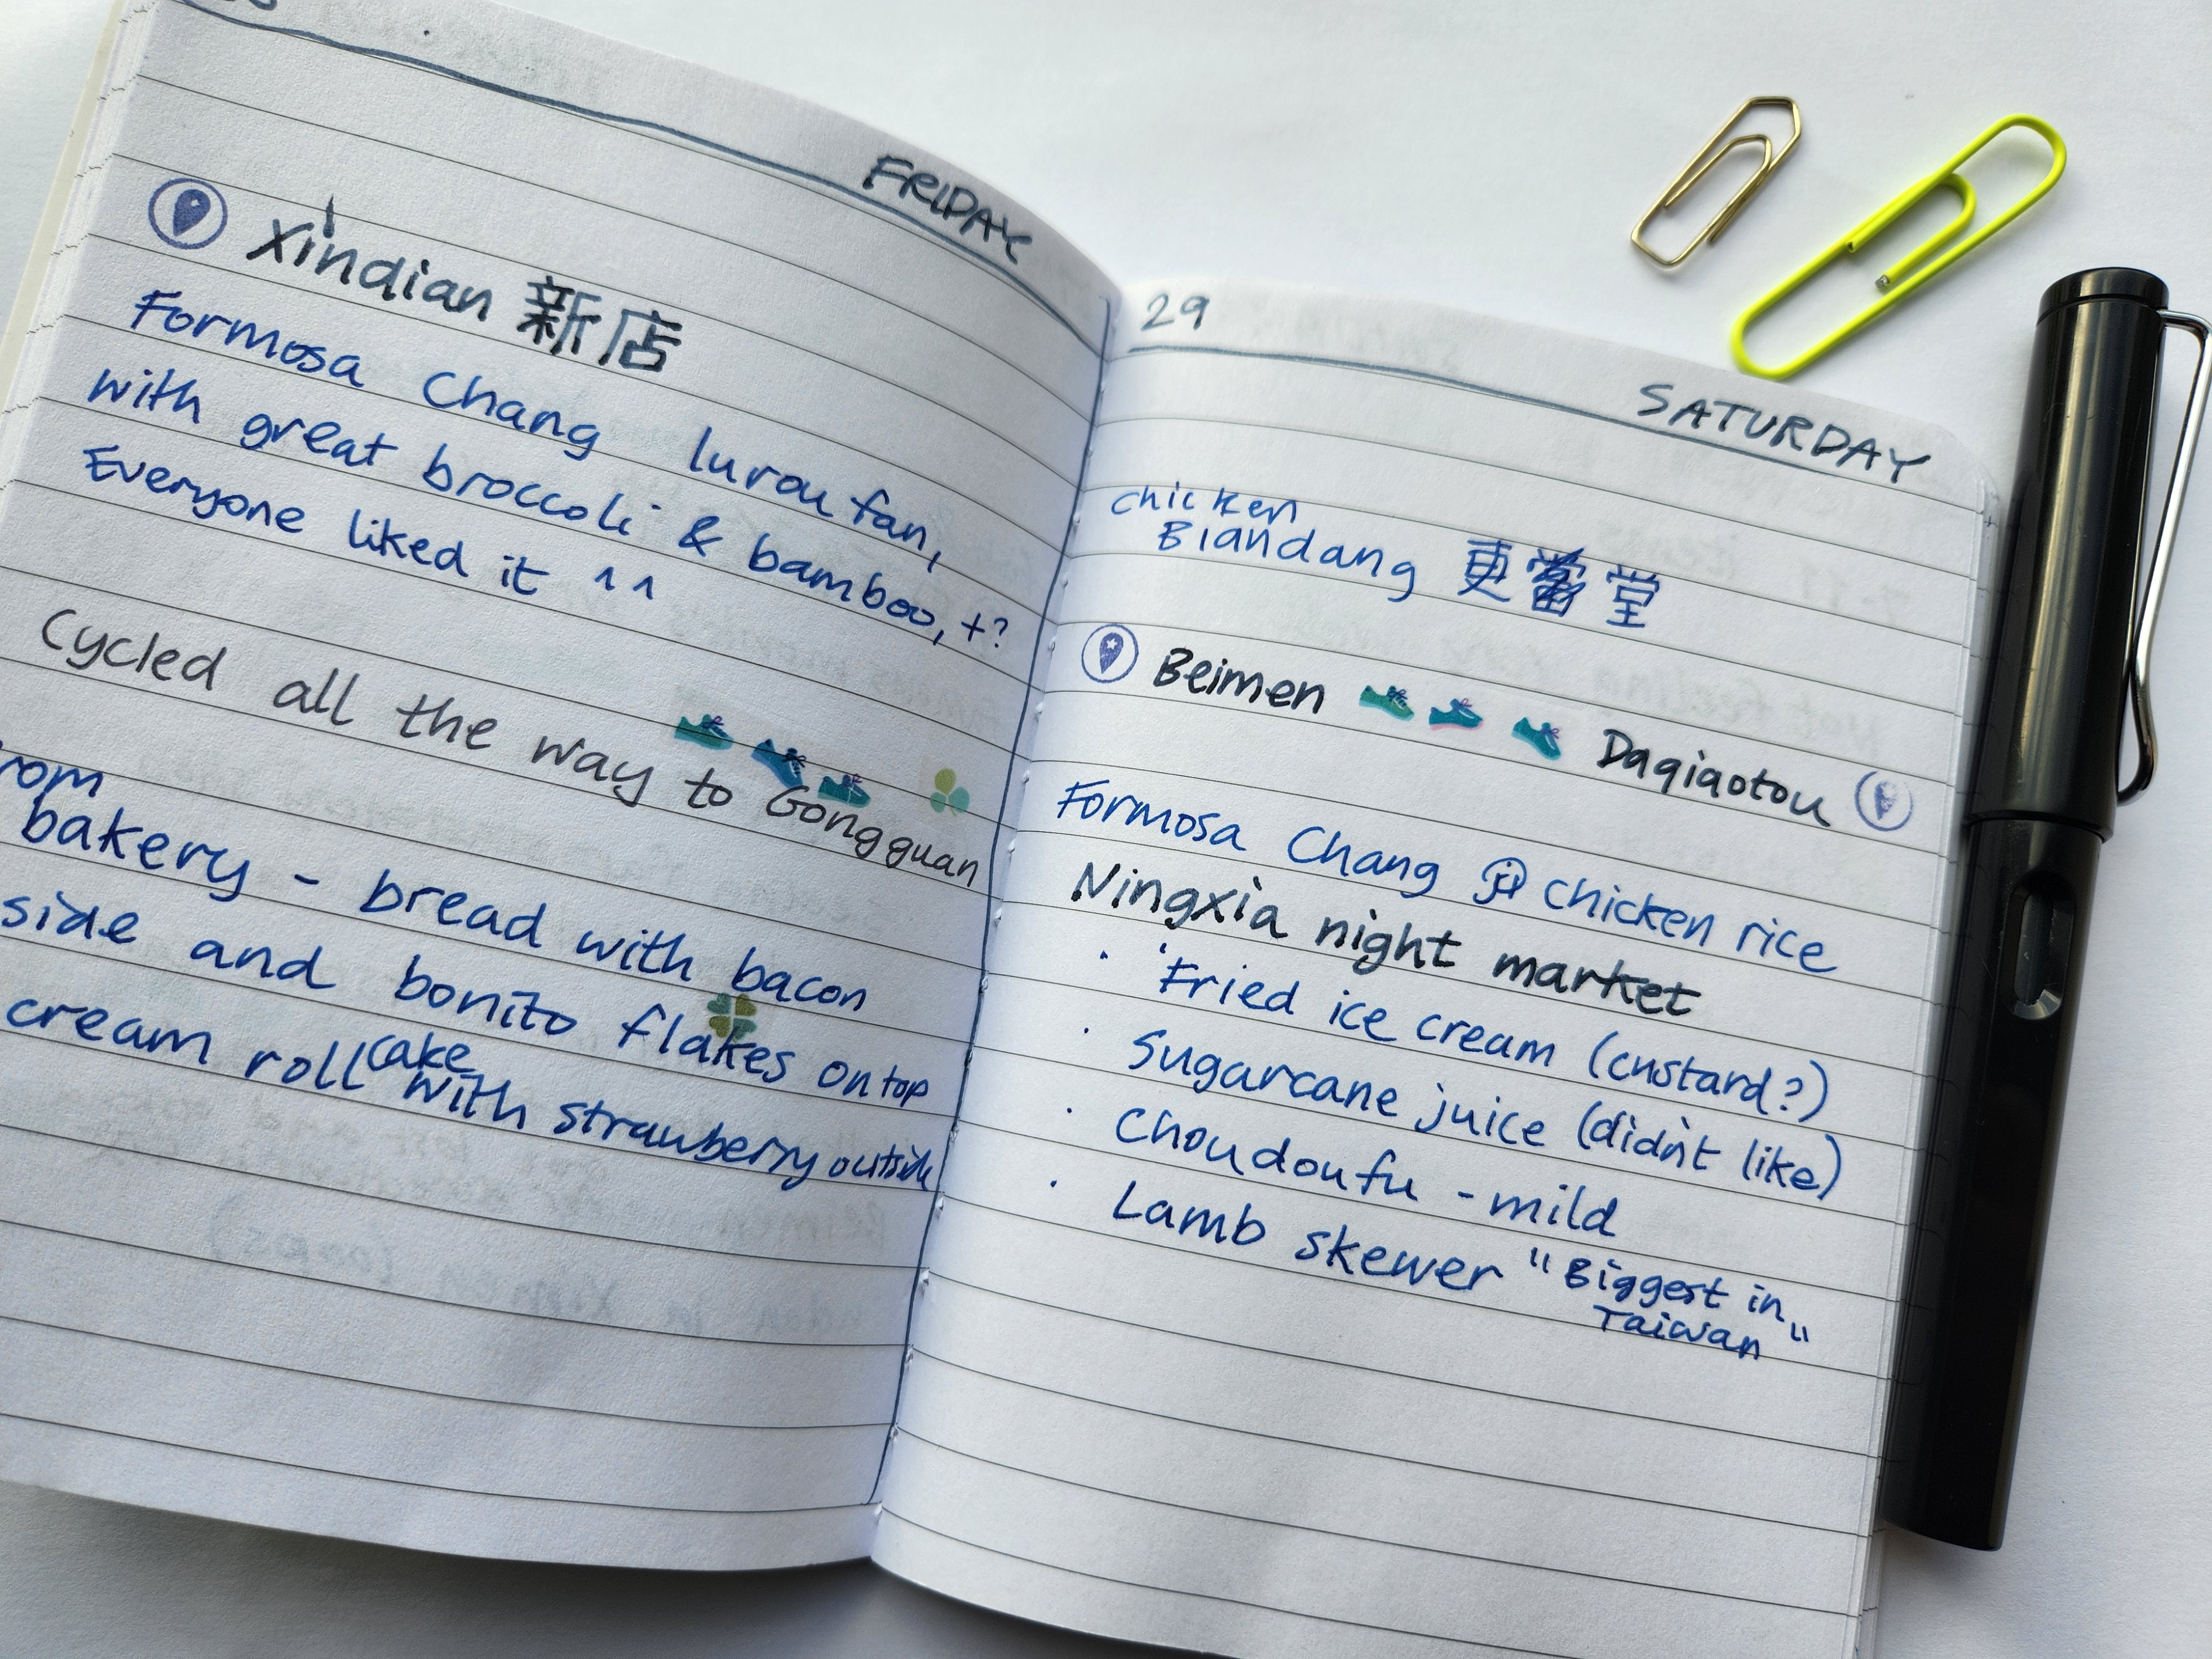 FRIDAY
Xindian 新店
Formosa Chang lurou fan,
with great broccoli & bamboo, +?
Everyone liked it ^ ^
Cycled all the way to Gongguan
rom
bakery - bread with bacon
side and bonito flakes on top
cream roll cake with strawberry outside
29
SATURDAY
Chicken
Biandang 更 堂
Beimen Daqiaotou
Formosa Chang chicken rice
Ningxia night market
· Fried ice cream (custard?)
· Sugarcane juice (didn't like)
· Choudoufu - mild
· Lamb skewer "Biggest in
Taiwan"